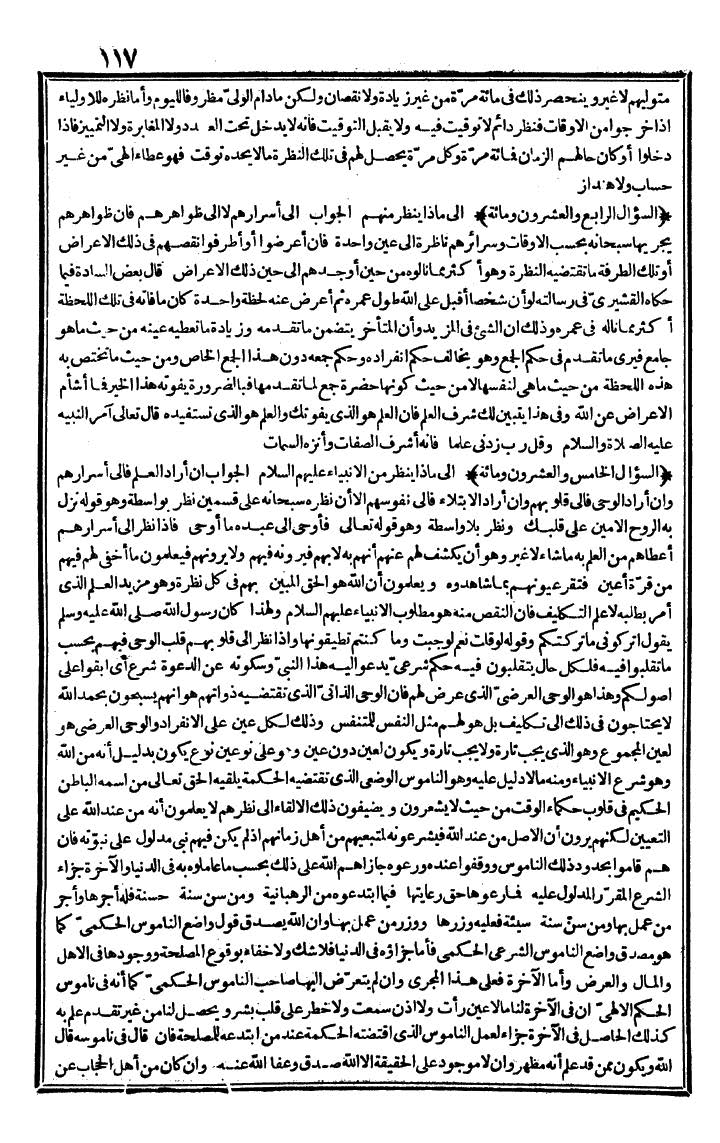 ١١٧
متوليهم لا غير وينحصر ذلك فى مائة مرّة من غير زيادة ولا نقصان ولكن مادام الولىّ مظروفا لليوم وأما نظره للاولياء
اذا خرجوا من الاوقات فنظر دائم لا توقيت فيه ولا يقبل التوقيت فانه لا يدخل تحت العدد ولا المغايرة ولا التمييز فاذا
دخلوا أو كان حالهم الزمان فمائة مرّة وكل مرّة يحصل لهم فى تلك النظرة مالا يحده توقت فهو عطاء الهىّ من غير
حساب ولا هنداز
﴿السؤال الرابع والعشرون ومائة﴾ الى ماذا ينظر منهم الجواب الى أسرارهم لا الى ظواهرهم فان ظواهرهم
يجريها سبحانه بحسب الاوقات وسرائرهم ناظرة الى عين واحدة فان أعرضوا أو أطرفوا نقصهم فى ذلك الاعراض
أو تلك الطرفة ما تقتضيه النظرة وهو أكثر مما نالوه من حين أوجدهم الى حين ذلك الاعراض قال بعض السادة فيما
حكاه القشيرىّ فى رسالته لو أن شخصا أقبل على الله طول عمره ثم أعرض عنه لحظة واحدة كان ما فاته فى تلك اللحظة
أكثر مما ناله فى عمره وذلك ان الشئ فى المزيد وأن المتأخر يتضمن ما تقدمه وزيادة ما تعطيه عينه من حيث ما هو
جامع فيرى ما تقدم فى حكم الجمع وهو يخالف حكم انفراده وحكم جمعه دون هذا الجمع الخاص ومن حيث ما تختص به
هذه اللحظة من حيث ماهى لنفسها لا من حيث كونها حضرة جمع لما تقدمها فبالضرورة يفوته هذا الخير فما أشأم
الاعراض عن الله وفى هذا يتبين لك شرف العلم فان العلم هو الذى يفوتك والعلم هو الذى تستفيده قال تعالى آمر النبيه
عليه الصلاة والسلام وقل رب زدنى علما فانه أشرف الصفات وأنزه السمات
﴿السؤال الخامس والعشرون ومائة﴾ الى ماذا ينظر من الانبياء عليهم السلام الجواب ان أراد العلم فالى أسرارهم
وان أراد الوحى فالى قلوبهم وان أراد الابتلاء فالى نفوسهم الا أن نظره سبحانه على قسمين نظر بواسطة وهو قوله نزل
به الروح الامين على قلبك ونظر بلا واسطة وهو قوله تعالى فأوحى الى عبده ما أوحى فاذا نظر الى أسرارهم
أعطاهم من العلم به ماشاء لا غير وهو أن يكشف لهم عنهم أنهم به لا بهم فيرونه فيهم ولا يرونهم فيعلمون ما أخفى لهم فيهم
من قرّة أعين فتقر عيونهم بما شاهدوه ويعلمون أن الله هو الحق المبين بهم فى كل نظرة وهو مزيد العلم الذى
أمر بطلبه لا علم التكليف فان النقص منه هو مطلوب الانبياء عليهم السلام ولهذا كان رسول الله صلى الله عليه وسلم
يقول اتركونى ما تركتكم وقوله لو قلت نعم لوجبت وما كنتم تطيقونها واذا نظر الى قلوبهم قلب الوحى فيهم بحسب
ما تقلبوا فيه فلكل حال يتقلبون فيه حكم شرعى يدعو اليه هذا النبىّ وسكوته عن الدعوة شرع أى ابقوا على
اصولكم وهذا هو الوحى العرضىّ الذى عرض لهم فان الوحى الذاتىّ الذى تقتضيه ذواتهم هو انهم يسبحون بحمد الله
لا يحتاجون فى ذلك الى تكليف بل هو لهم مثل النفس للمتنفس وذلك لكل عين على الانفراد والوحى العرضى هو
لعين المجموع وهو الذى يجب تارة ولا يجب تارة ويكون لعين دون عين وهو على نوعين نوع يكون بدليل أنه من الله
وهو شرع الانبياء ومنه مالا دليل عليه وهو الناموس الوضعى الذى تقتضيه الحكمة يلقيه الحق تعالى من اسمه الباطن
الحكيم فى قلوب حكماء الوقت من حيث لا يشعرون ويضيفون ذلك الالقاء الى نظرهم لا يعلمون أنه من عند الله على
التعيين لكنهم يرون أن الاصل من عند الله فيشرعونه لمتبعيهم من أهل زمانهم اذ لم يكن فيهم نبى مدلول على نبوّته فان
هم قاموا بحدود ذلك الناموس ووقفوا عنده ورعوه جازاهم الله على ذلك بحسب ما عاملوه به فى الدنيا والآخرة جزاء
الشرع المقرّر المدلول عليه فما رعوها حق رعايتها فيما ابتدعوه من الرهبانية ومن سن سنة حسنة فله أجرها وأجر
من عمل بها ومن سنّ سنة سيئة فعليه وزرها ووزر من عمل بها وان الله يصدق قول واضع الناموس الحكمىّ كما
هو مصدق واضع الناموس الشرعى الحكمى فأما جزاؤه فى الدنيا فلا شك ولا خفاء بوقوع المصلحة ووجودها فى الاهل
والمال والعرض وأما الآخرة فعلى هذا المجرى وان لم يتعرّض اليها صاحب الناموس الحكمىّ كما أنه فى ناموس
الحكم الالهىّ ان فى الآخرة لنا مالا عين رأت ولا اذن سمعت ولا خطر على قلب بشر ويحصل لنا من غير تقدم علم به
كذلك الحاصل فى الآخرة جزاء لعمل الناموس الذى اقتضته الحكمة عند من ابتدعه للمصلحة فان قال فى ناموسه قال
الله ويكون ممن قد علم أنه مظهر وان لا موجود على الحقيقة الا الله صدق وعفا الله عنه وان كان من أهل الحجاب عن